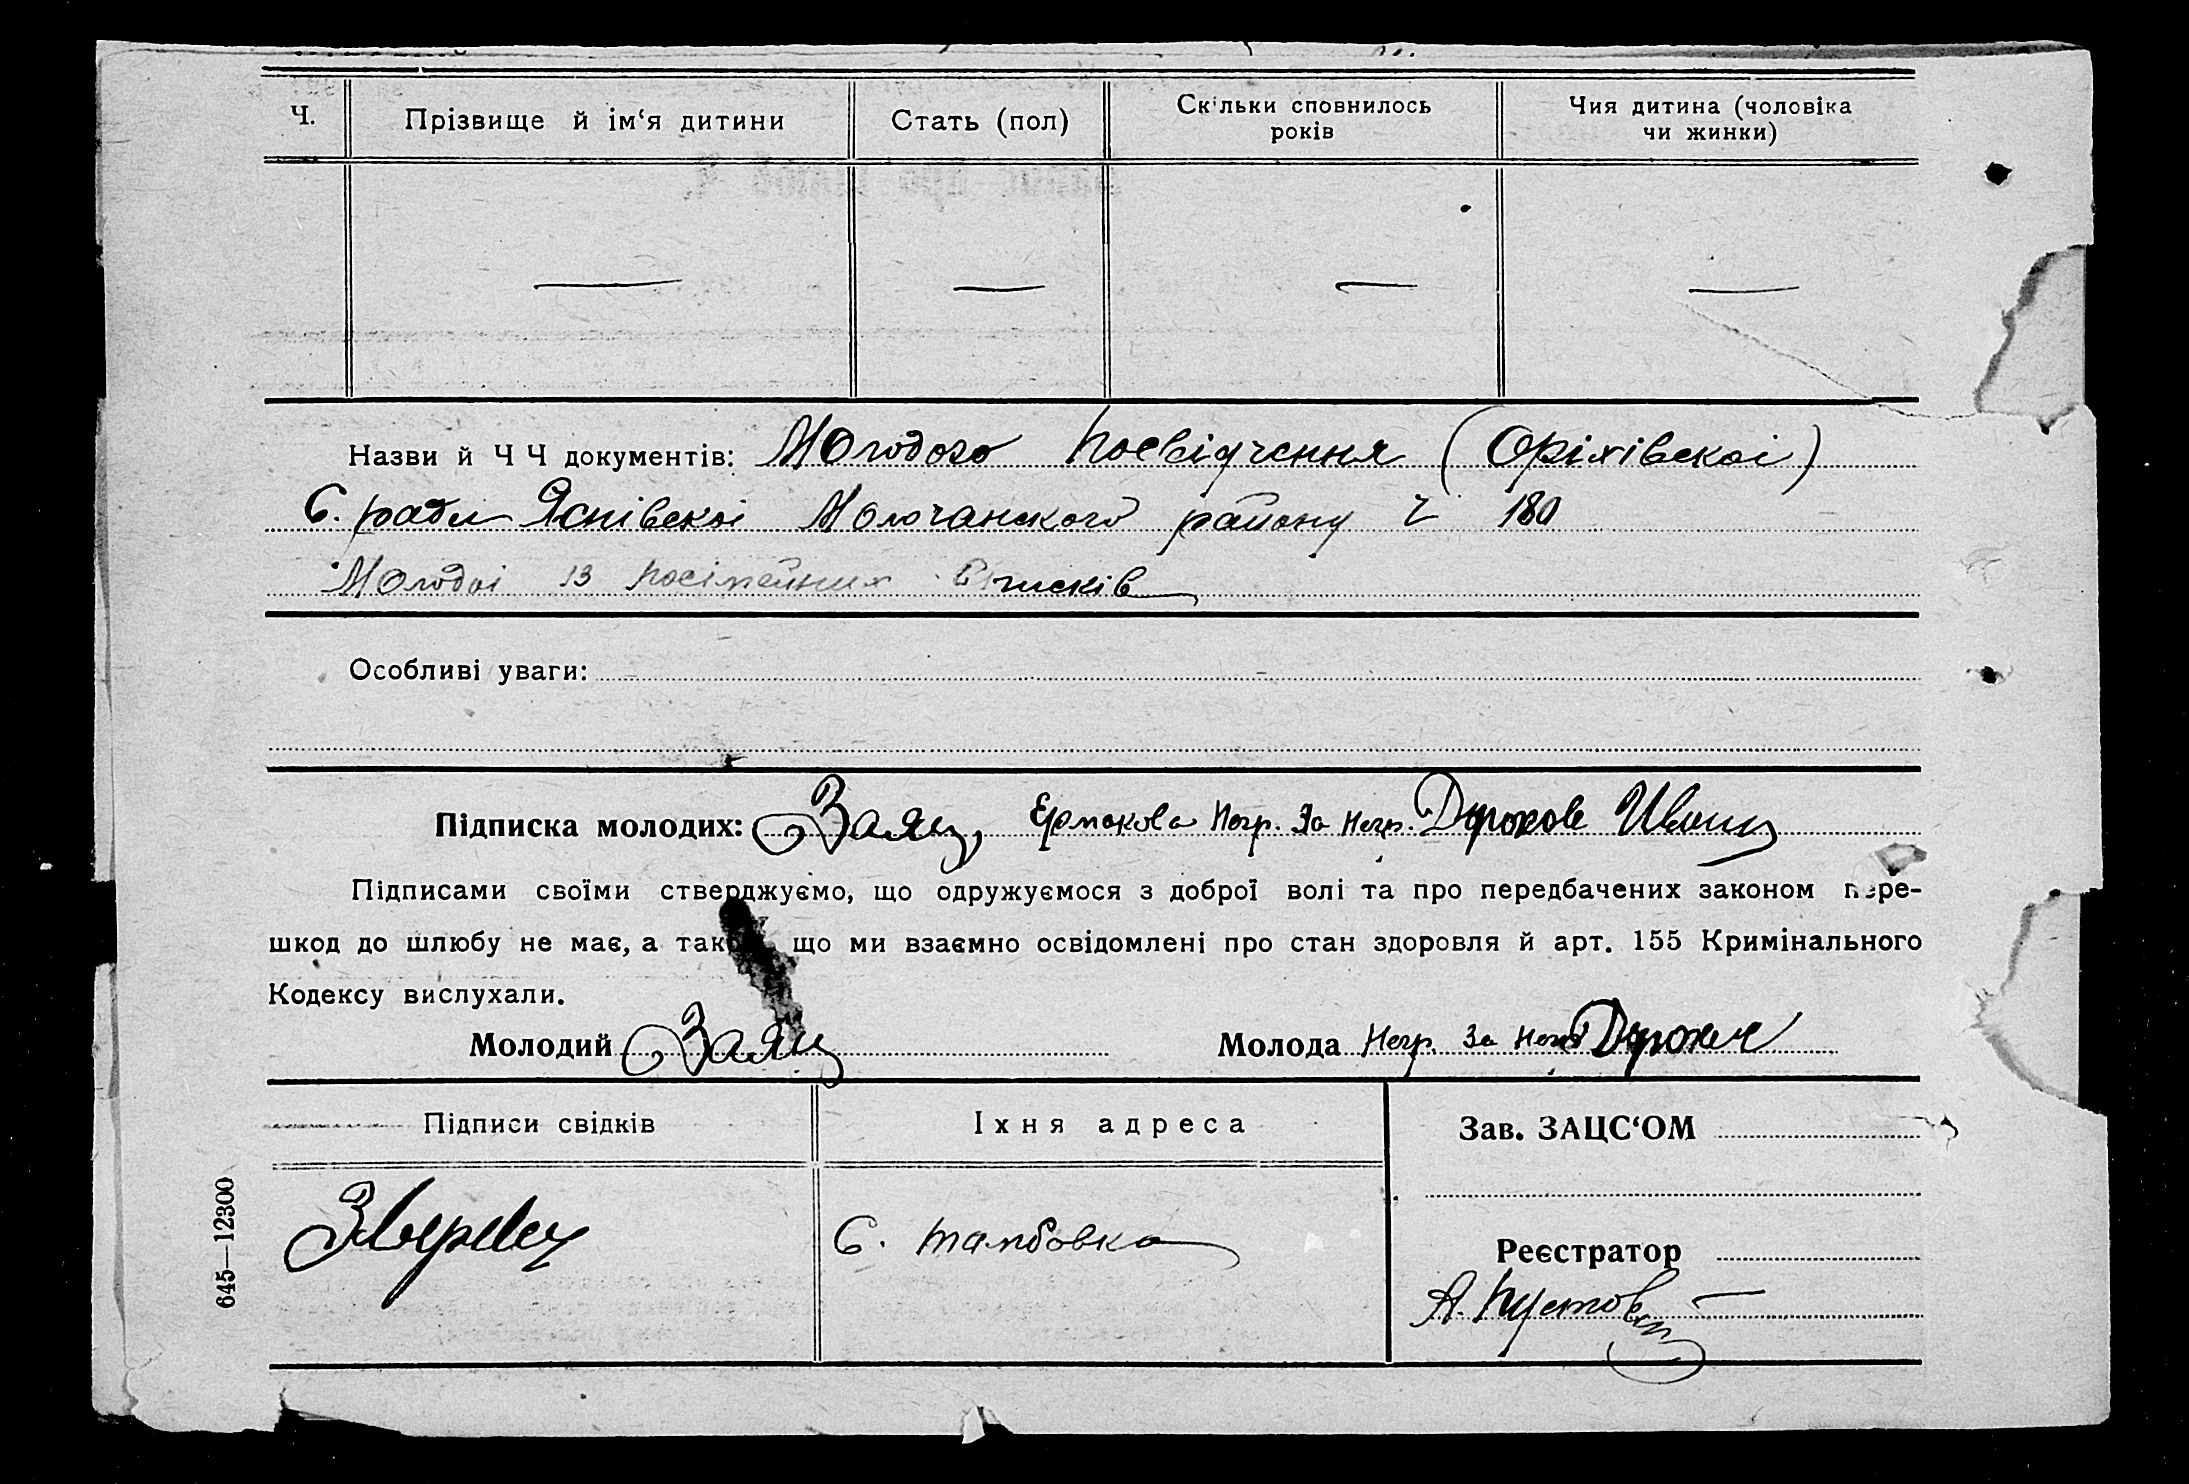 Ч.
Прізвище й ім‘я дитини
Стать (пол)
Скільки сповнилось
років
Чия дитина (чоловіка
чи жинки)
— — — —
Назви й Ч Ч документів: Молодого посвідчення (Оріхівскоі)
С. ради Молочанского району Ч 180
Молодоі із посімейних списків
Особливі уваги:
Підписка молодих: Заяц, Ермакова Негр. За Негр.
Підписами своїми стверджуємо, що одружуємося з доброї волі та про передбачених законом пере-
шкод до шлюбу не має, а також що ми взаємно освідомлені про стан здоровля й арт. 155 Кримінального
Кодексу вислухали.
Молодий Заяц
Молода Негр. За Негр.
Підписи свідків
Їхня адреса
С. Тамбовка
Зав. ЗАЦС‘ОМ
Реєстратор
А.
645—12300